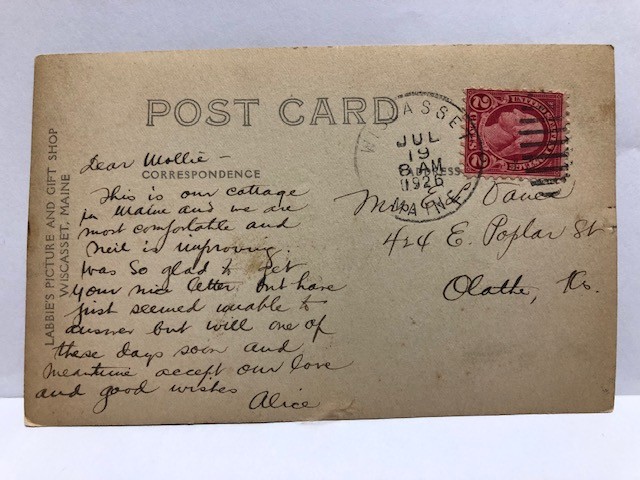 POST CARD
CORRESPONDENCE
ADDRESS
LABBIE'S PICTURE AND GIFT SHOP
WISCASSET, MAINE
WISCASSET
JUL
19
8 AM
1926
MAINE
UNITED STATES
2 2
Dear Mollie –
This is our cottage
in Maine and we are
most comfortable and
Neil is improving.
Was so glad to get
your nice letter but have
just seemed unable to
answer but will one of
these days soon and
meantime accept our love
and good wishes
Alice
Vance
424 E. Poplar St
Olathe, Ks.